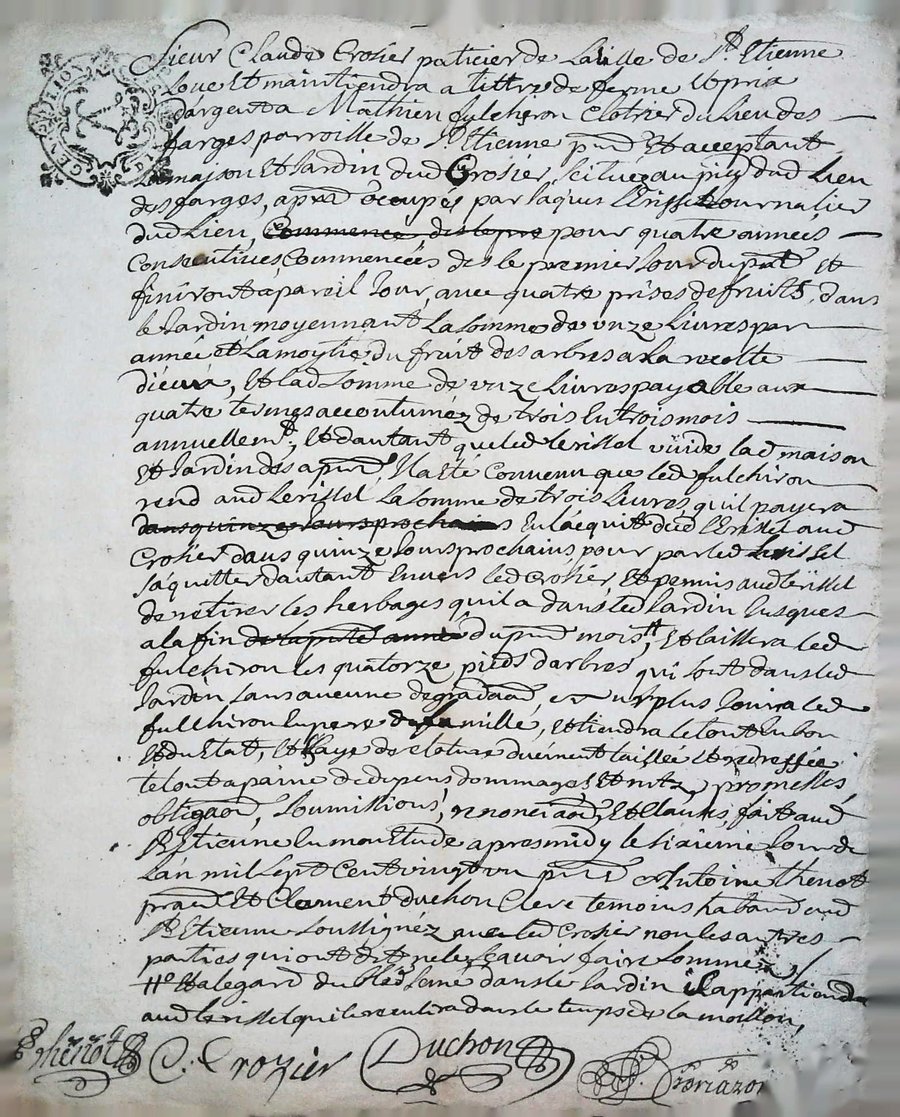 GEN DE LION
Sieur Claude Crosier paticier de La ville de St. Etienne
Loue Et maintiendra a tittre de ferme Et prix
dargent a Mathieu fulchiron Clotrier du Lieu des
farges parroisse de St. Etienne pnt Et acceptant
La maison Et Jardin dud Crosier, scitués au puy dud Lieu
des farges, a pnt ocupés par Jaques Terissel Journalier
dud Lieu, Commencé des le pre pour quatre années
Consecutives, Commencées des le premier Jour du pnt Et
finiront a pareil Jour, avec quatre prises de fruits, dans
le Jardin moyennant La somme de unze Livres par
année et La moytié du fruit des arbres a La recolte
diceux, Et lad somme de unze Livres payable aux
quatre termes accoutuméz de trois En trois mois
annuellemt, Et dautant que led Terissel vuide lad maison
Et Jardin des a pnt, Il a Eté Convenu que led fulchiron
rend aud Terissel La somme de trois Livres, quil payera
dans quinze Jours prochains En Lacquit dud Terissel aud
Crosier dans quinze Jours prochains pour par led Terissel
saquitter dautant Envers led Crosier Et permis aud Terissel
de retirer les herbages quil a dans led Jardin Jusques
a la fin de la pnte année du pnt mois, Et laissera led
fulchiron les quatorze pieds darbres qui sont dans led
Jardin sans aucune degradaon, et au surplus Jouira led
fulchiron En pere de famille, Et tiendra le tout En bon
Et du Etat, Et haye de cloture duement taillée Et redressée
le tout a paine de depens dommages Et ntz, promesses,
obligaon, soumissions, renonciaons, Et Clauses, fait aud
St. Etienne En mon Etude apres midy le sixieme Jour de
Lan mil sept Cent vingt un pnts Antoine Thenot
praen Et Clement duchon Clerc temoins habans aud
St. Etienne soussignéz avec led Crosier non les autres
parties qui ont dit ne le scavoir faire sommez,
Et a legard du bled semé dans le Jardin il appartiendra
aud Terissel qui le recuillira dans le temps de la moisson,
Thenot C. Crozier Duchon